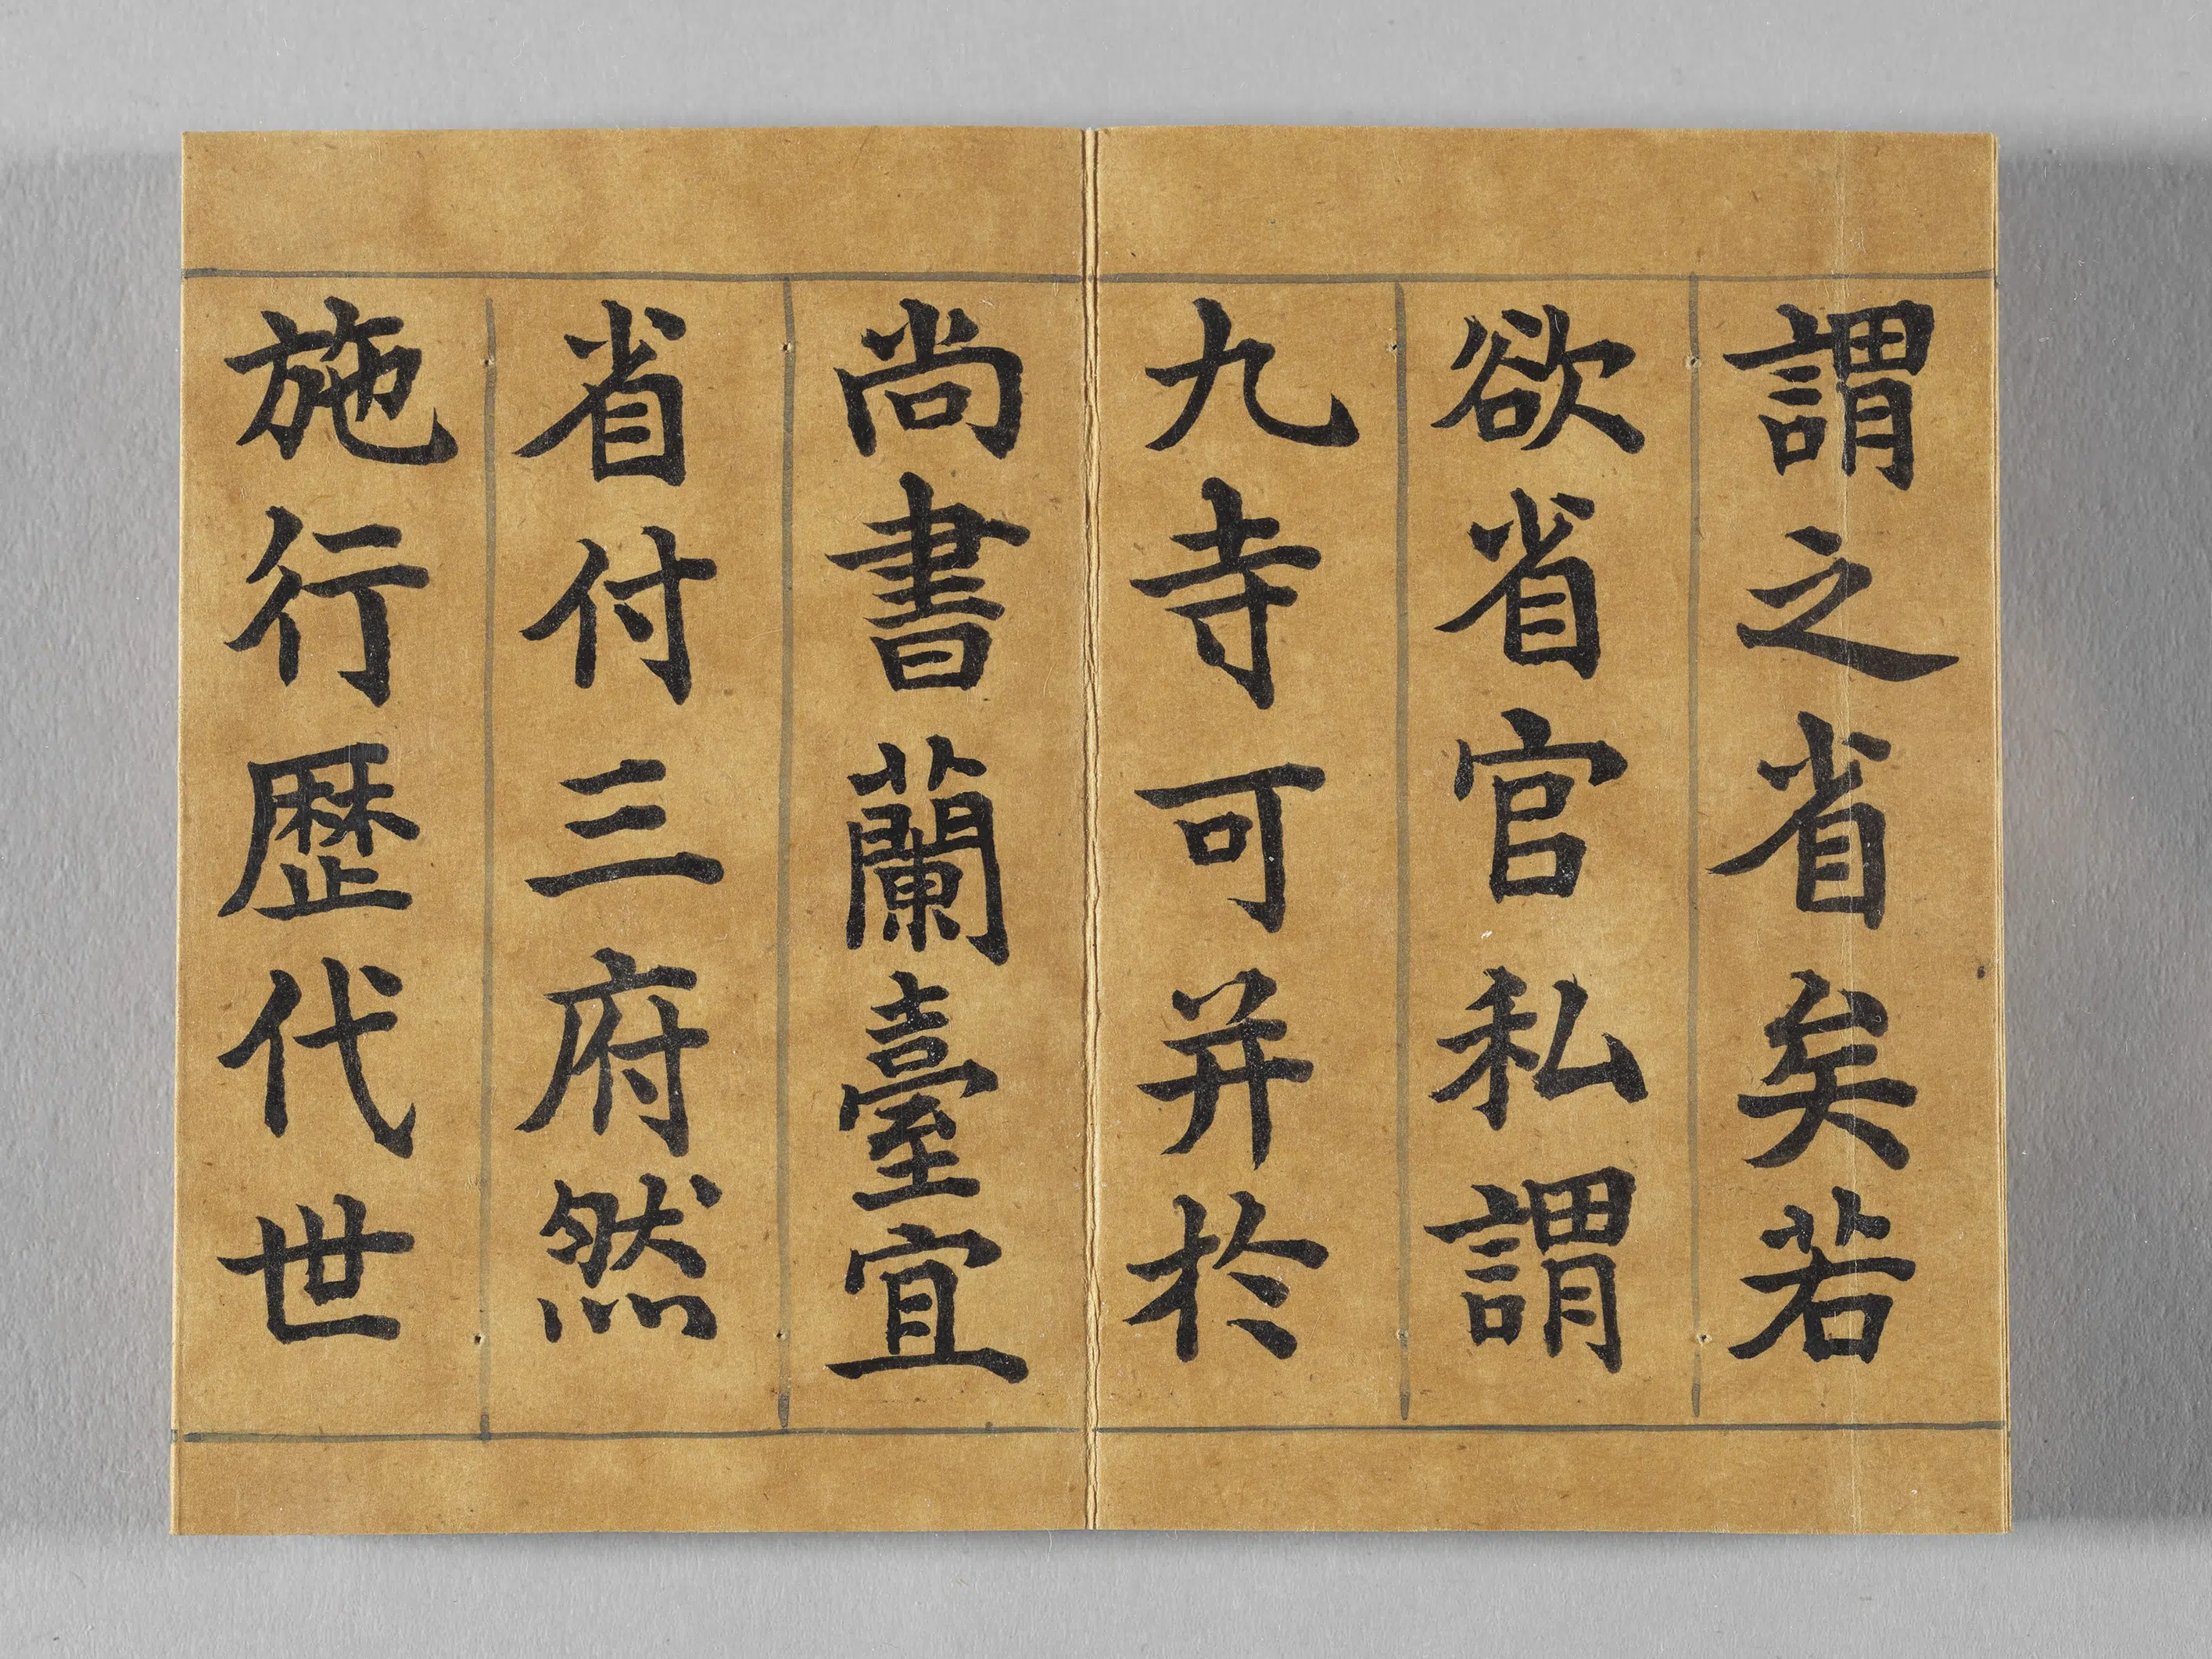 謂之省矣若
欲省官私謂
九寺可并於
尚書蘭臺宜
省付三府然
施行歷代世